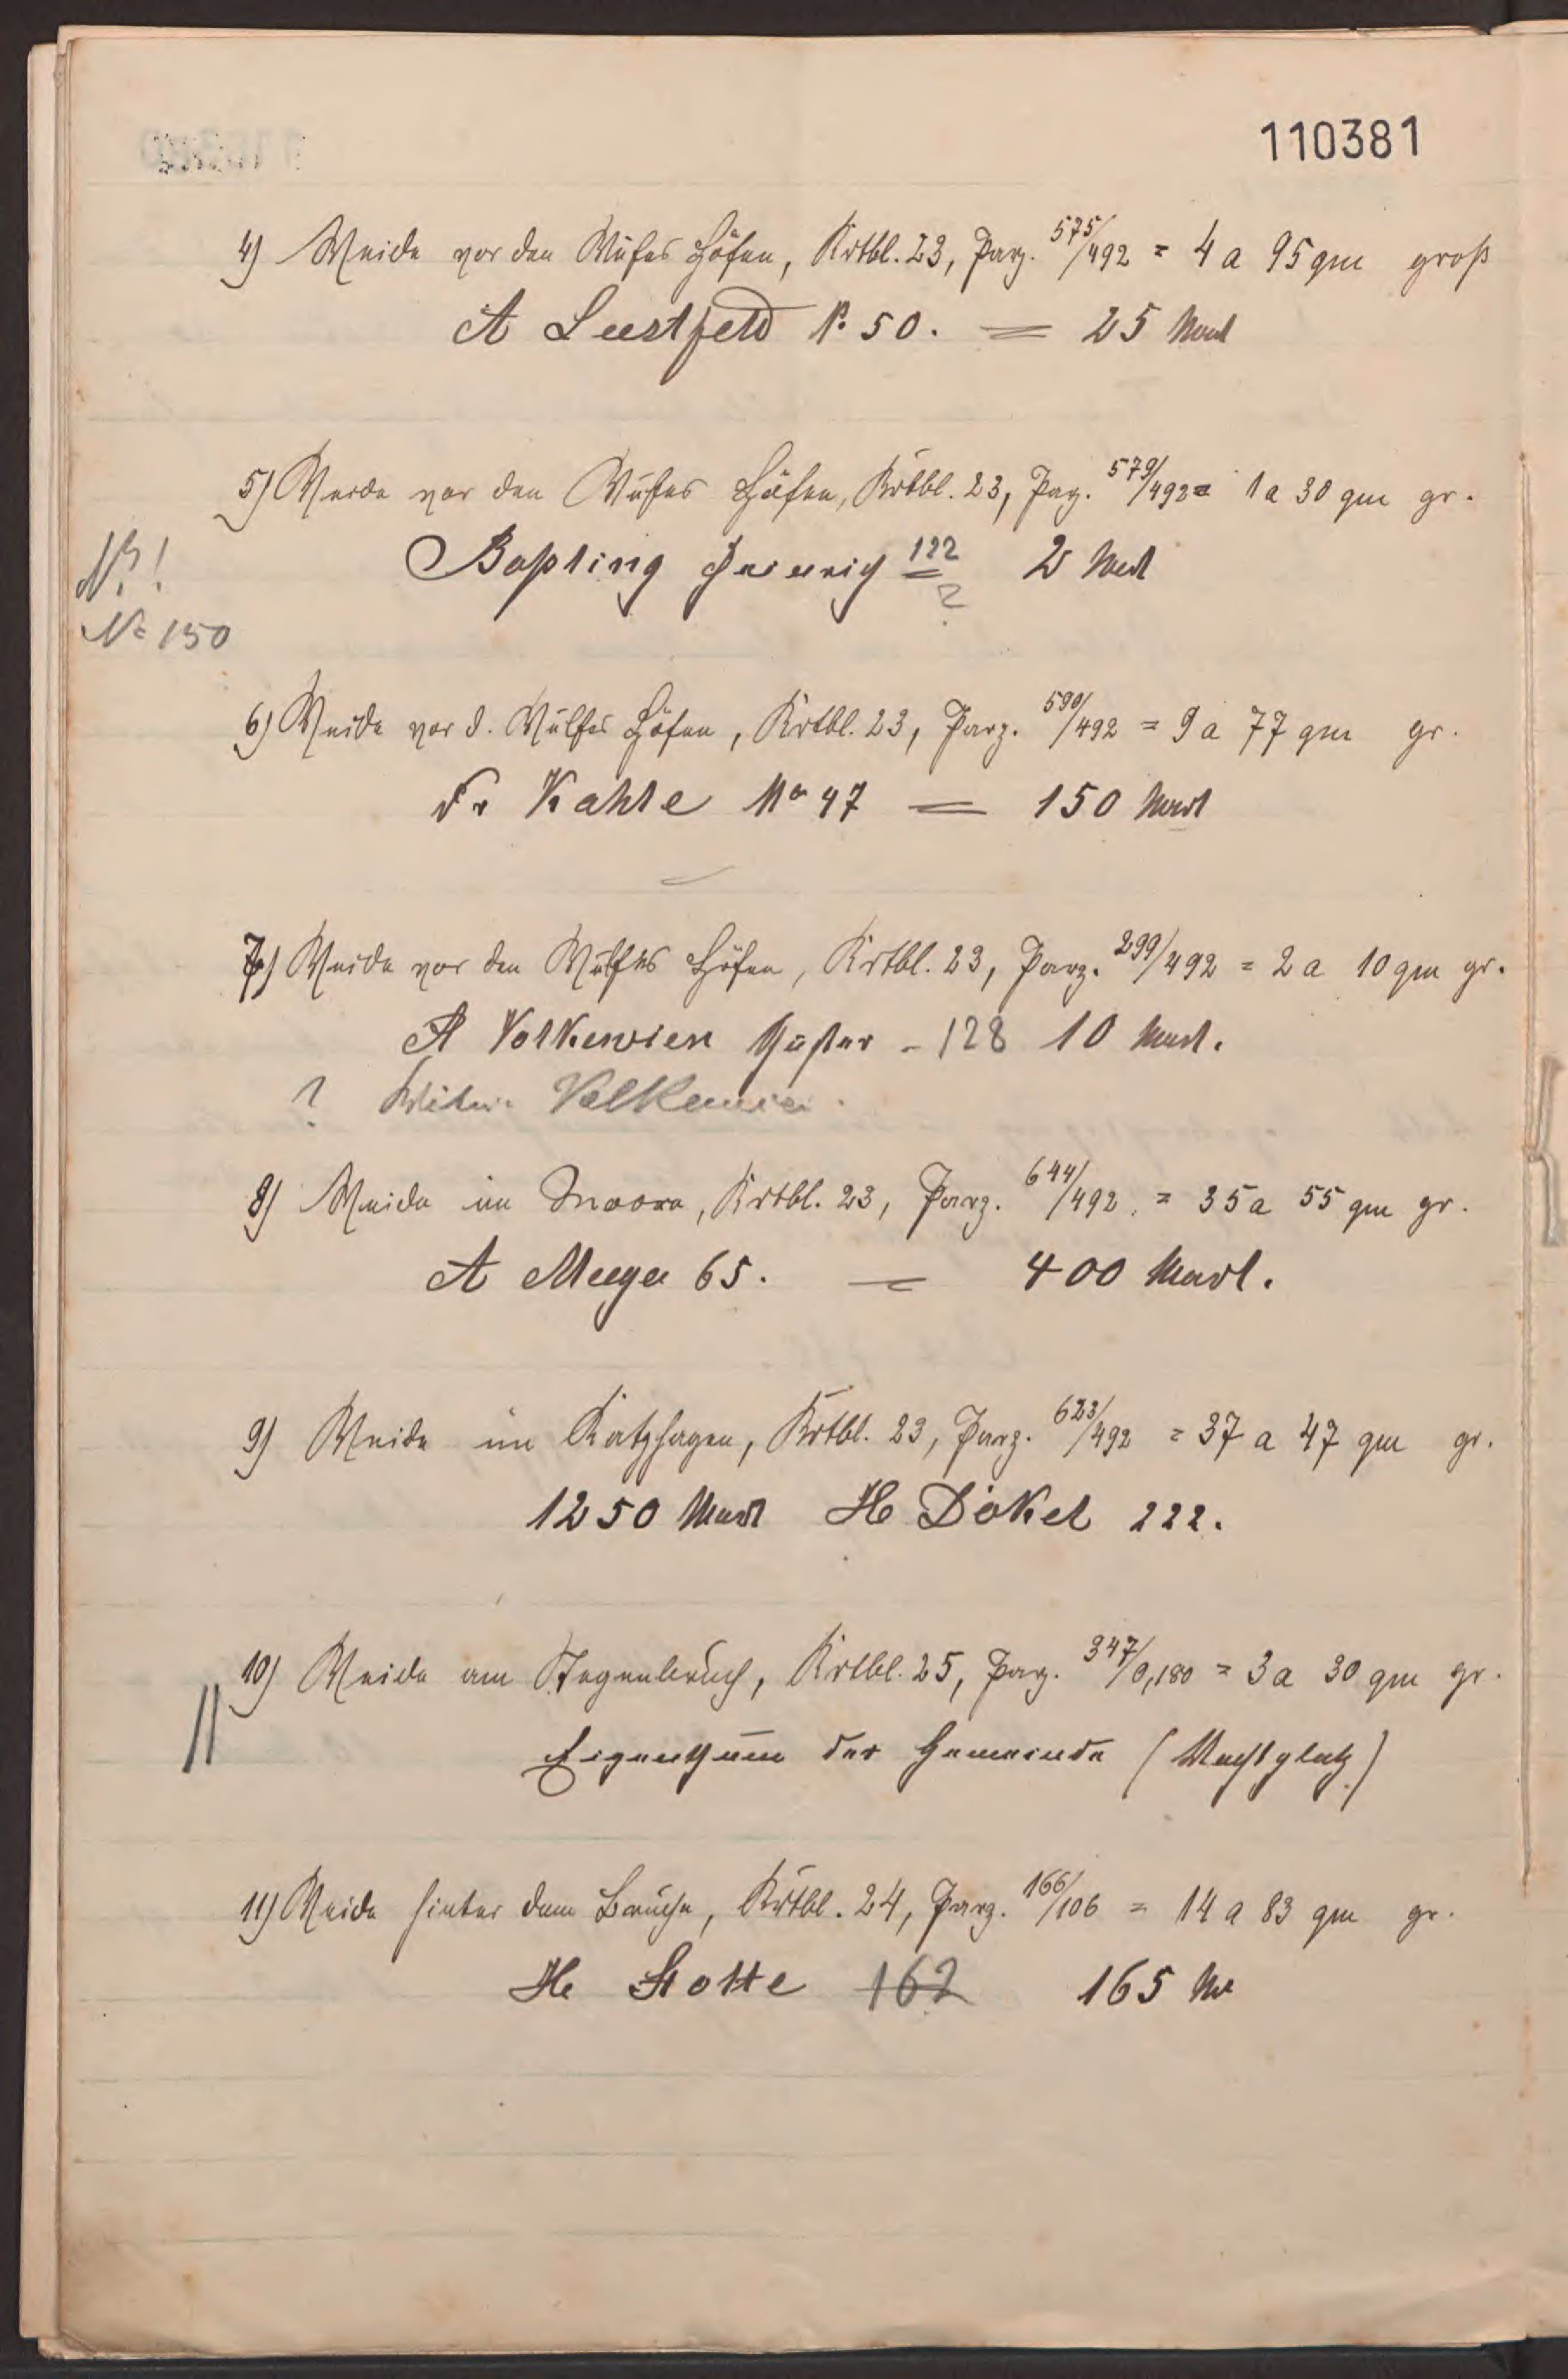 110381
4) Weide vor den Wulfes Höfen, Krtbl. 23, Parz. 575/492 = 4 a 95 qm groß
A Lustfeld N. 50. = 25 Mark
5) Weide vor den Wulfes Höfen, Krtbl. 23, Parz. 579/492 = 1 a 30 qm gr.
Boßling Heinrich 122 2 Mark
?
N°!
N° 150
6) Weide vor d. Wulfes Höfen, Krtbl. 23, Parz. 590/492 = 9 a 77 qm gr.
Fr Kahle No 47 = 150 Mark
7) Weide vor den Wulfes Höfen, Krtbl. 23, Parz. 299/492 = 2 a 10 qm gr.
A Volkewien - 128 10 Mark.
? Witwe Volkewien.
8) Weide im Moore, Krtbl. 23, Parz. 644/492 = 35 a 55 qm gr.
A Meyer 65. = 400 Mark.
9) Weide im Katzhagen, Krtbl. 23, Parz. 623/492 = 37 a 47 qm gr.
1250 Mark He Dökel 222.
10) Weide am Stegenbruch, Krtbl. 25, Parz. 347/0,180 = 3 a 30 qm gr.
Eigenthum der Gemeinde
11) Weide hinter dem Bruche, Krtbl. 24, Parz. 166/106 = 14 a 83 qm gr.
He Stotte 162 165 Mk